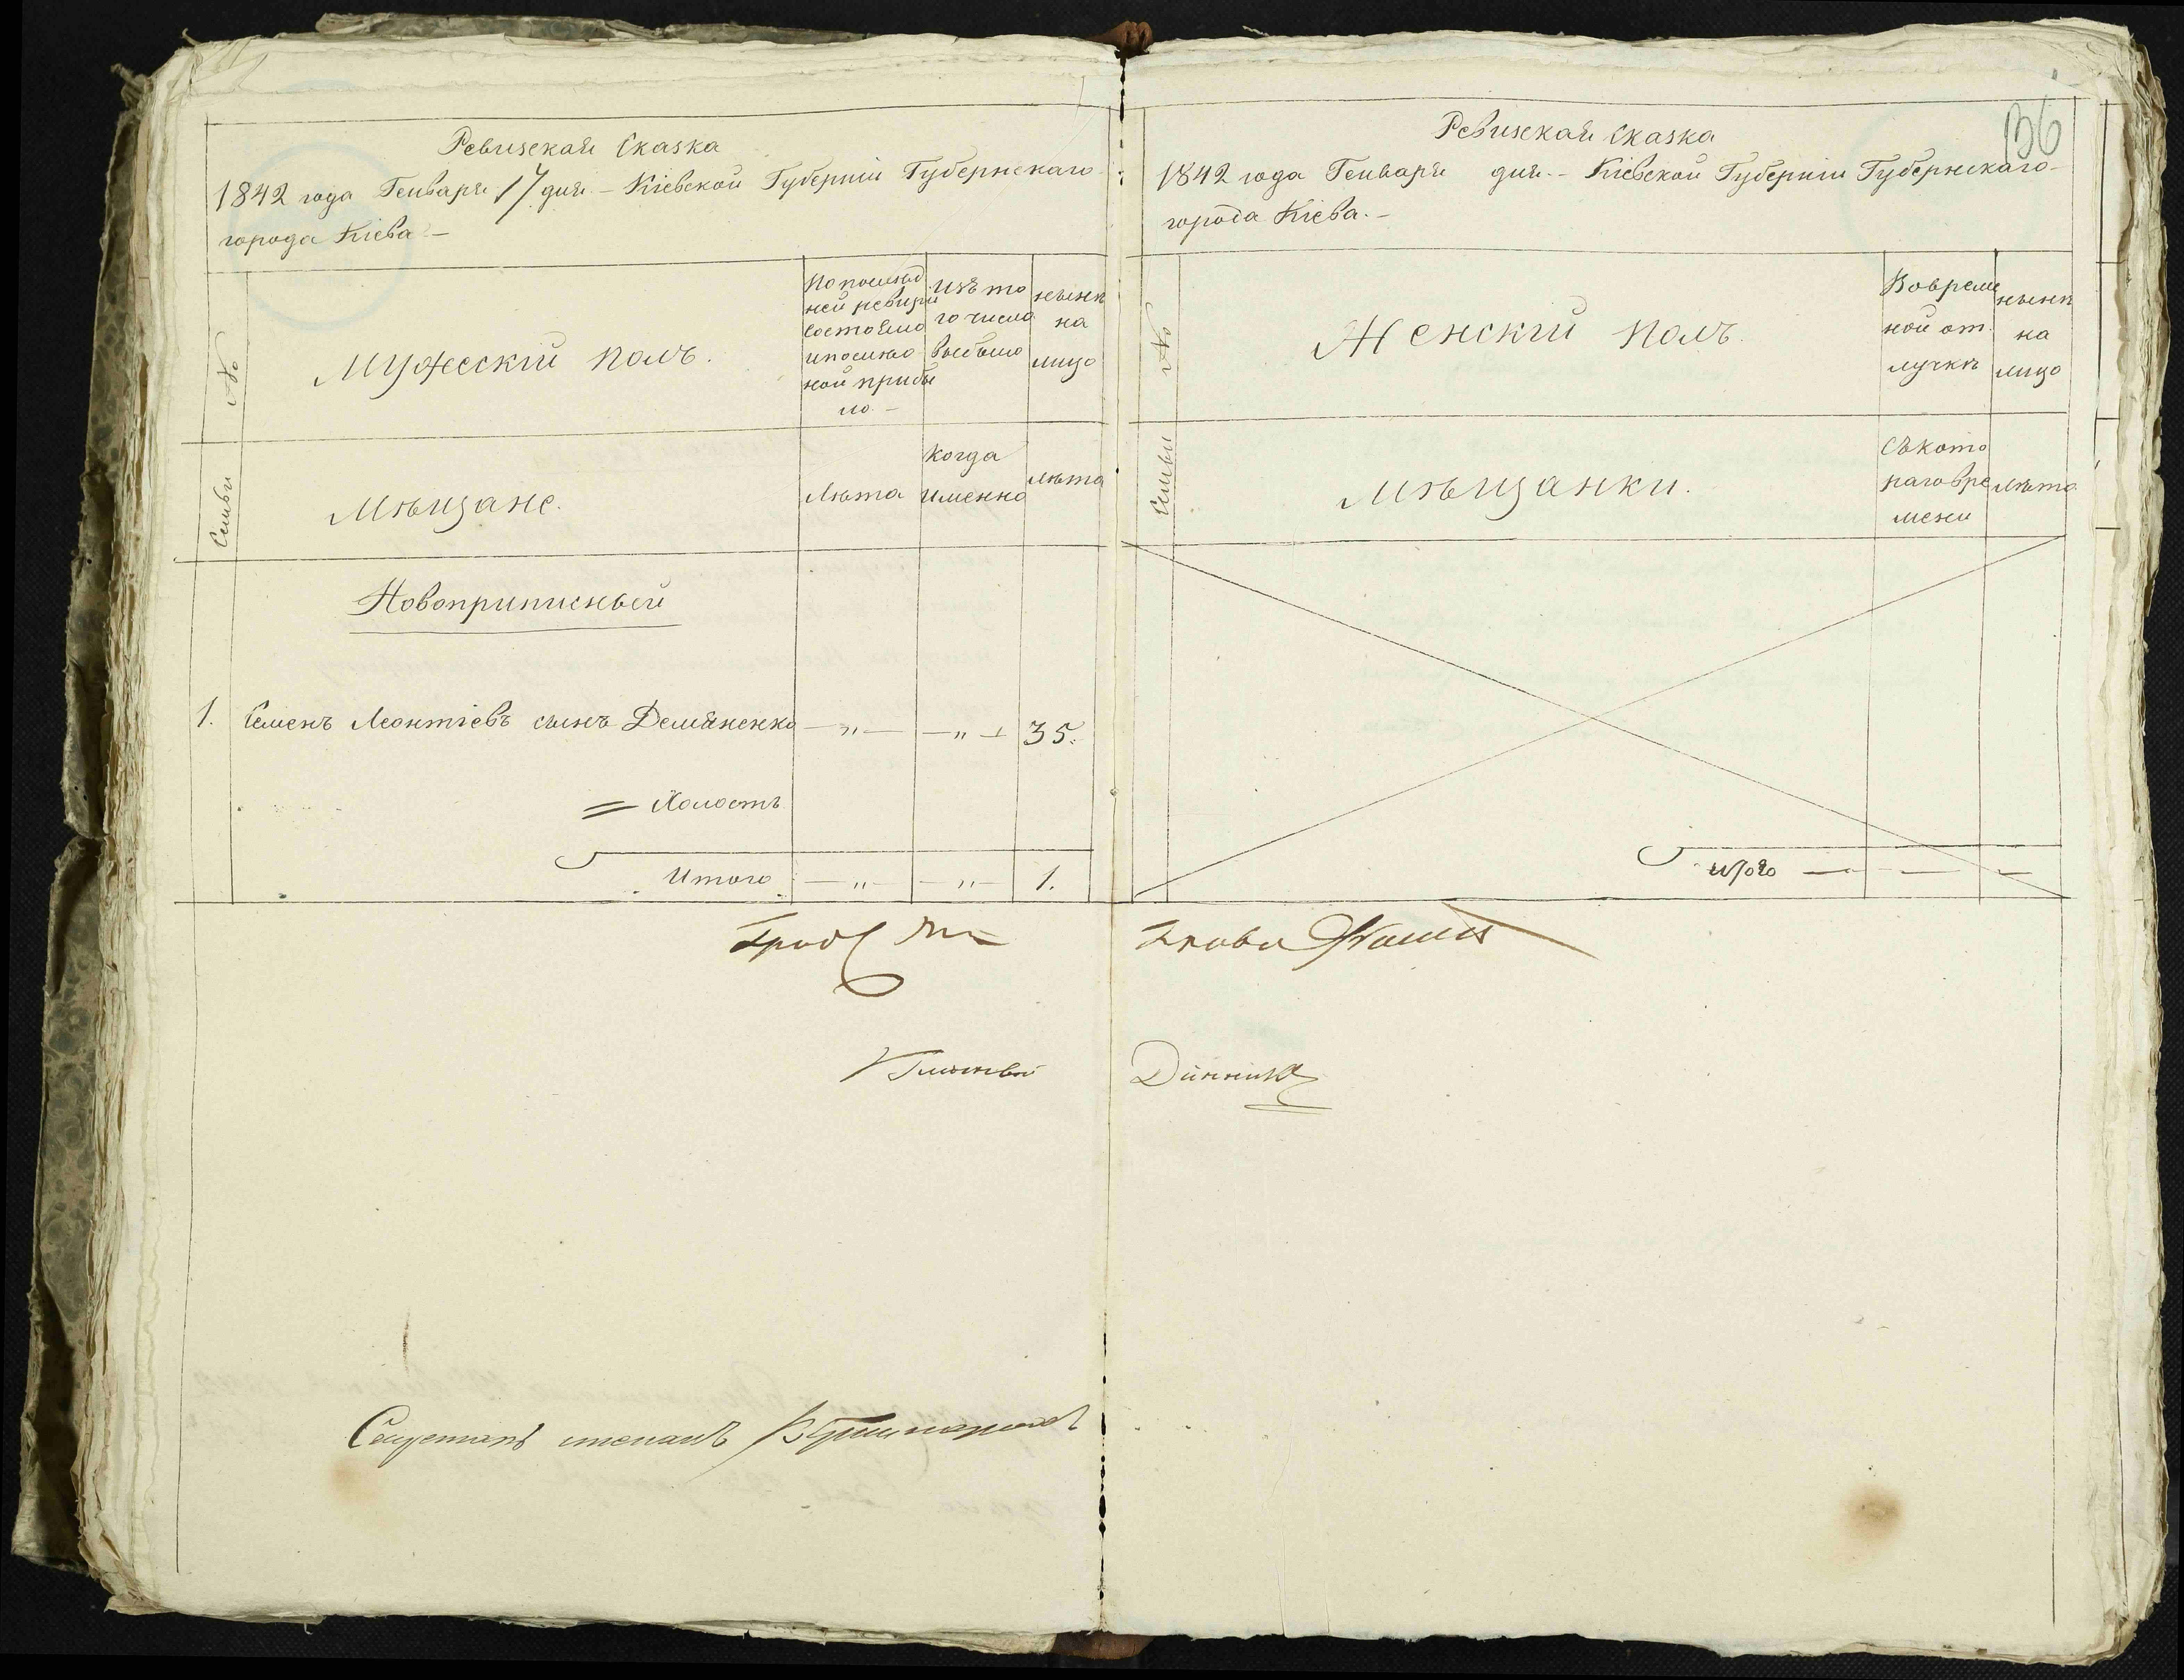 Ревизская Сказка
1842 года Генваря 17 дня – Кіевской Губерніи Губернскаго
города Кіева –
№
Мужескій полъ.
По послѣд
ней ревизіи
состояло
и послѣ
ной прибы
ло –
Изъ то
го числа
выбыло
нынѣ
на
лицо
Семьи
Мѣщане.
Лѣта
когда
именно
Лѣта
Новоприписный
1. Семенъ Леонтіевъ сынъ Демяненко — „ — — „ — 35.
= Холостъ
Итого — „ — — „ — 1.
Степанъ
136
Ревизская Сказка
1842 года Генваря дня – Кіевской Губерніи Губернскаго
города Кіева. –
№
Женскій полъ.
Во време
ной от
лучкѣ
нынѣ
на
лицо
Семьи
Мѣщанки.
Съ кото
раго вре
мени
Лѣта
Итого — — —
Голова
Гласный Динникъ